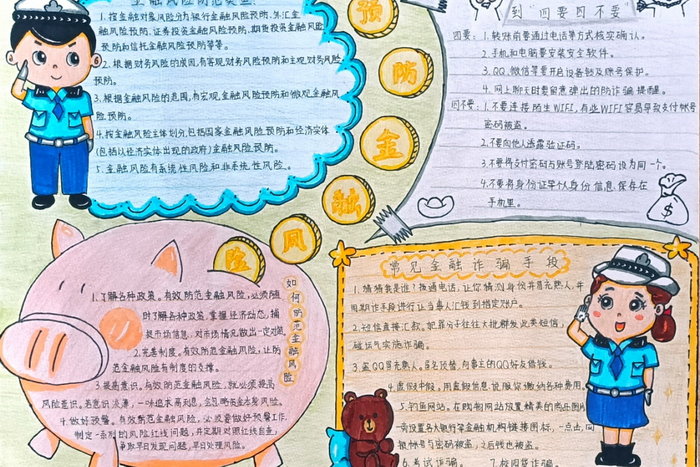 金融风险防范类型
1. 按金融对象风险分为银行金融风险预防、外汇金
融风险预防、证券投资金融风险预防、期货投资金融风险
预防和信托金融风险预防等等。
2. 根据财务风险的成因,有客观财务风险预防和主观财务风险
预防。
3. 根据金融风险的范围,有宏观金融风险预防和微观金融风
险预防。
4. 按金融风险主体划分,包括国家金融风险预防和经济实体
(包括以经济实体出现的政府)金融风险预防。
5. 金融风险有系统性风险和非系统性风险。
预
防
金
融
风
险
到"四要四不要"
四要:1. 转账前要通过电话等方式核实确认。
2. 手机和电脑要安装安全软件。
3. QQ、微信等要开启设备锁及账号保护。
4. 网上聊天时要留意弹出的防诈骗提醒。
四不要:1. 不要连接陌生WIFI,有些WIFI容易导致支付帐号
密码被盗。
2. 不要向他人透露验证码。
3. 不要将支付密码与账号登陆密码设为同一个。
4. 不要将身份证等个人身份信息保存在
手机里。
如何防范金融风险
1. 了解各种政策。有效防范金融风险,必须随
时了解各种政策、掌握经济动态,捕
捉市场信息,对市场情况做出一定对策
2. 完善制度。有效防范金融风险,让防
范金融风险有制度的支撑。
3. 提高意识。有效防范金融风险,就必须提高
风险意识。若意识淡薄,一味追求高利息,会忽略资金本身风险。
4. 做好预警。有效防范金融风险,必须要做好预警工作。
制定一系列的风险红线问题,并定期对照红线自查,
争取早日发现问题,早日处理风险。
常见金融诈骗手段
1. 猜猜我是谁?拨通电话,让你猜测身份并冒充熟人,并
用期诈手段进行让当事人汇钱到指定账户。
2. 过信直接汇款。犯罪分子往往大批群发此类短信,
碰运气实施诈骗。
3. 盗QQ冒充熟人。冒名顶替,向事主的QQ好友借钱。
4. 虚假中奖。用虚假信息说服你缴纳各种费用。
5. 钓鱼网站。在购物网站放置精美的商品图片
旁设置各大银行等金融机构链接图标,一点击,网
银帐号与密码被盗,
6. 考试诈骗。
7. 校园贷诈骗。